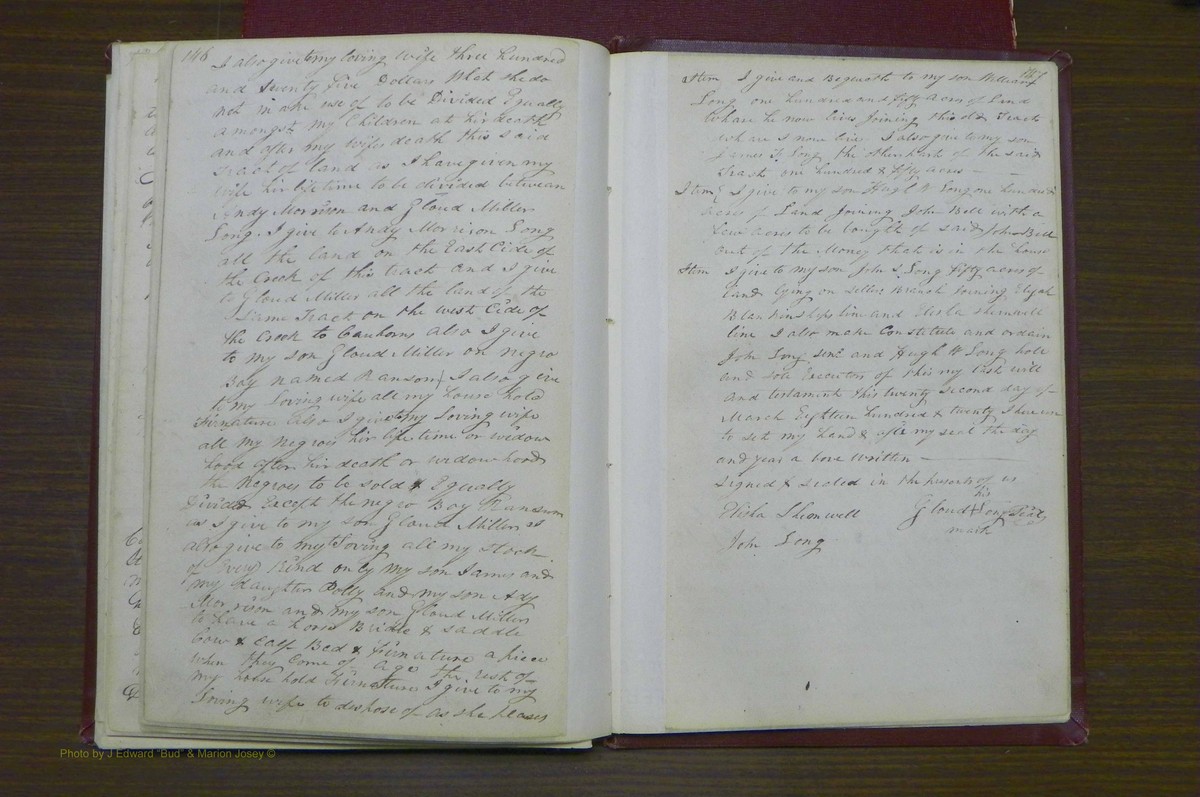 146
I also give to my loving wife three hundred
and Seventy five Dollars Which she do
not in the use of to be Divided Equally
amongst my Children at hir death
and after my wifes death this said
tract of land as I have given my
wife hir life time to be divided between
Andy Morrison and Gloud Miller
Song. I give to Andy Morrison Song
all the land on the East Cide of
the Creek of this tract and I give
to Gloud Miller all the land of the
Same Tract on the west Cide of
the Creek to Cauhorns also I give
to my son Gloud Miller on negro
Boy named Ransom I also give
to my Loving wife all my house hold
Firnature Also I give to my Loving wife
all my Negroes hir life time or widow
hood after hir death or widowhood
the Negroes to be sold & Equally
Divided Except the negro Boy Ransom
as I give to my son Gloud Miller I
also give to my Loving all my stock
of Every Kind only my son James and
my daughter Polly and my son Ady
Morrison and my son Gloud Miller
to have a horse Bridle & saddle
Cow & Calf Bed & Firnature a piece
when they Come of age the rest of
my house hold Firnature I give to my
loving wife to dispose of as she pleases
147
Item I give and Bequeath to my son William
Song one hundred and fifty acres of Land
Whare he now lives Joining this old Tract
whare I now live I also give to my son
James F Song the other part of the said
Tract one hundred & fifty acres
Item I give to my son Hugh W Song one hundred
acres of Land Joining John Bell with a
few acres to be bought of said John Bell
out of the Money that is in the house
Item I give to my son John S Song fifty acres of
land lying on Branch Joining Elijah
Blankinships line and Elisha Shemwell
line I also make Constitute and ordain
John Song Senr and Hugh W Song hole
and sole Executors of this my last will
and testament this twenty Second day of
March Eighteen hundred & twenty I have
to set my hand & my seal the day
and year a bove written
Signed & Sealed in the presents of us
his
Elisha Shemwell Gloud + Song Seal
mark
John Song
Photo by J Edward "Bud" & Marion Josey ©